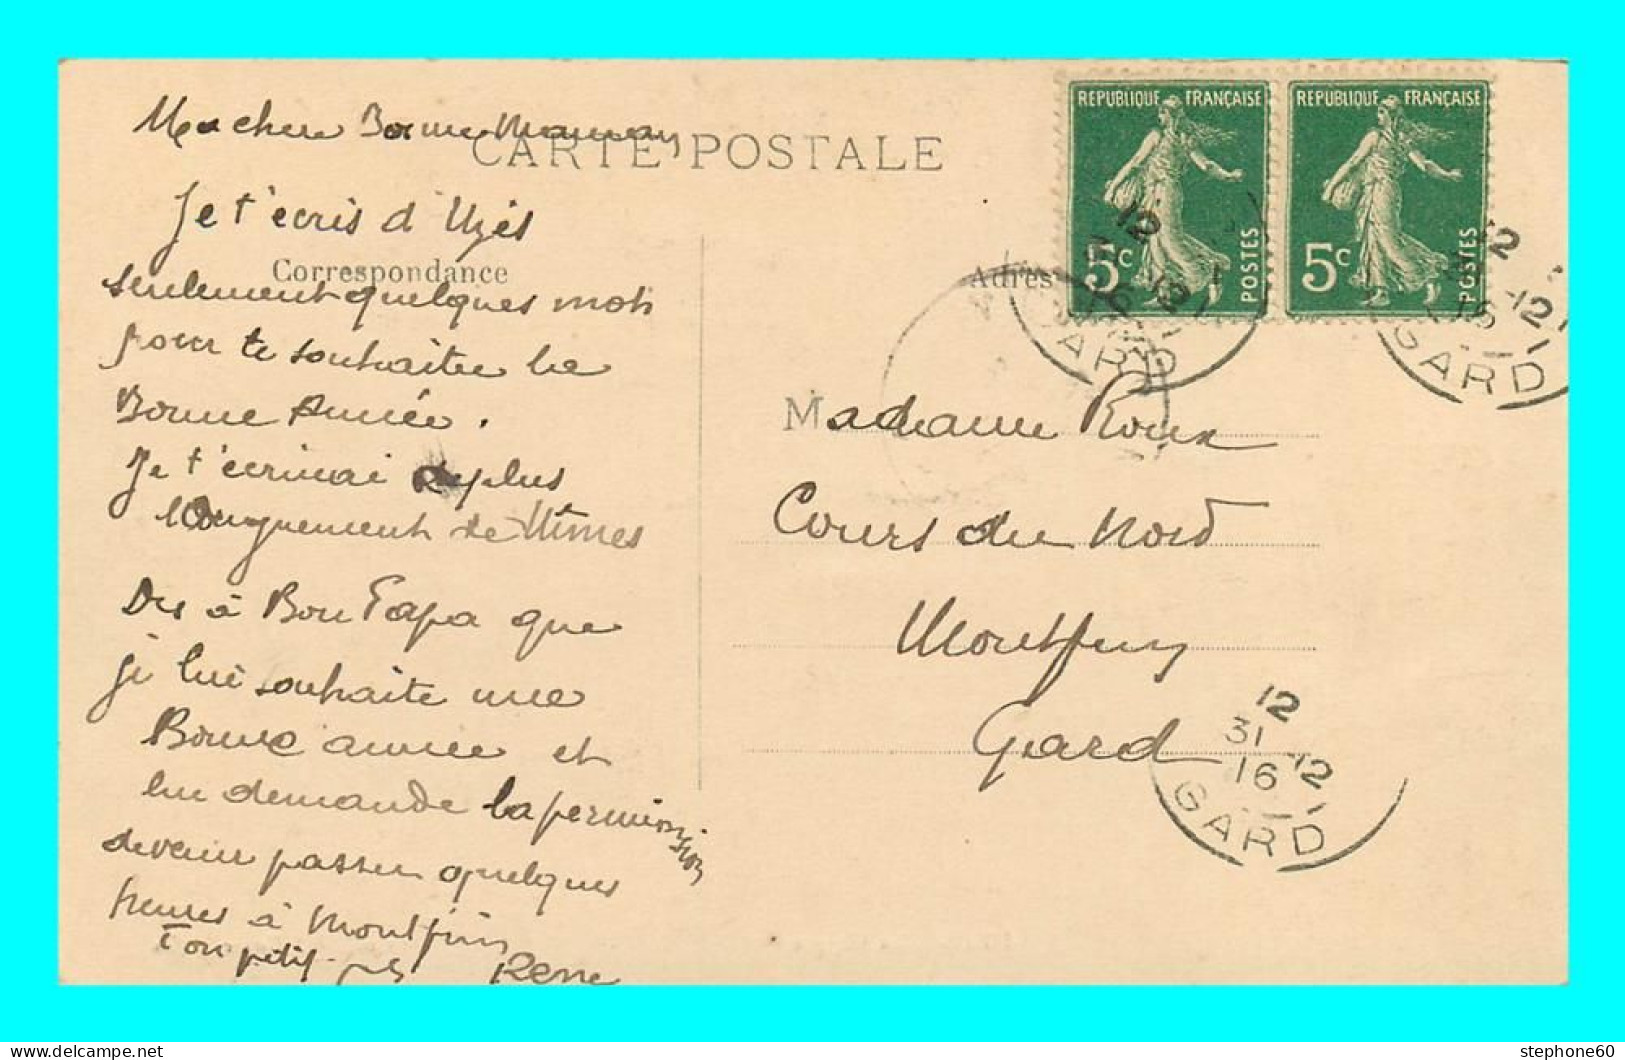 Ma chere Bonne Maman
CARTE POSTALE
Je t'écris d'Uzès
Correspondance
seulement quelques mots
pour te souhaiter la
Bonne Année.
Je t'écrirai plus
longuement de Nîmes
Dis à Bon Papa que
je lui souhaite une
Bonne année et
lui demande la permission
de venir passer quelques
heures à Montfrin
Ton petit fils René
REPUBLIQUE FRANÇAISE
5c POSTES
REPUBLIQUE FRANÇAISE
5c POSTES
12
16
GARD
12
16
GARD
Adres
Madame Roux
Cours du Nord
Montfrin
Gard
12
31-12
16
GARD
delcampe.net
stephone60